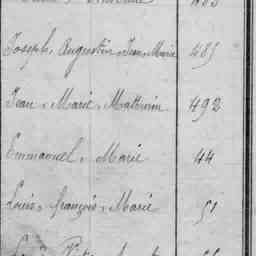 Joseph, Augustin, Jean, Marie 485
Jean, Marie, Mathurin 492
Emmanuel, Marie 44
Louis, françois, Marie 51